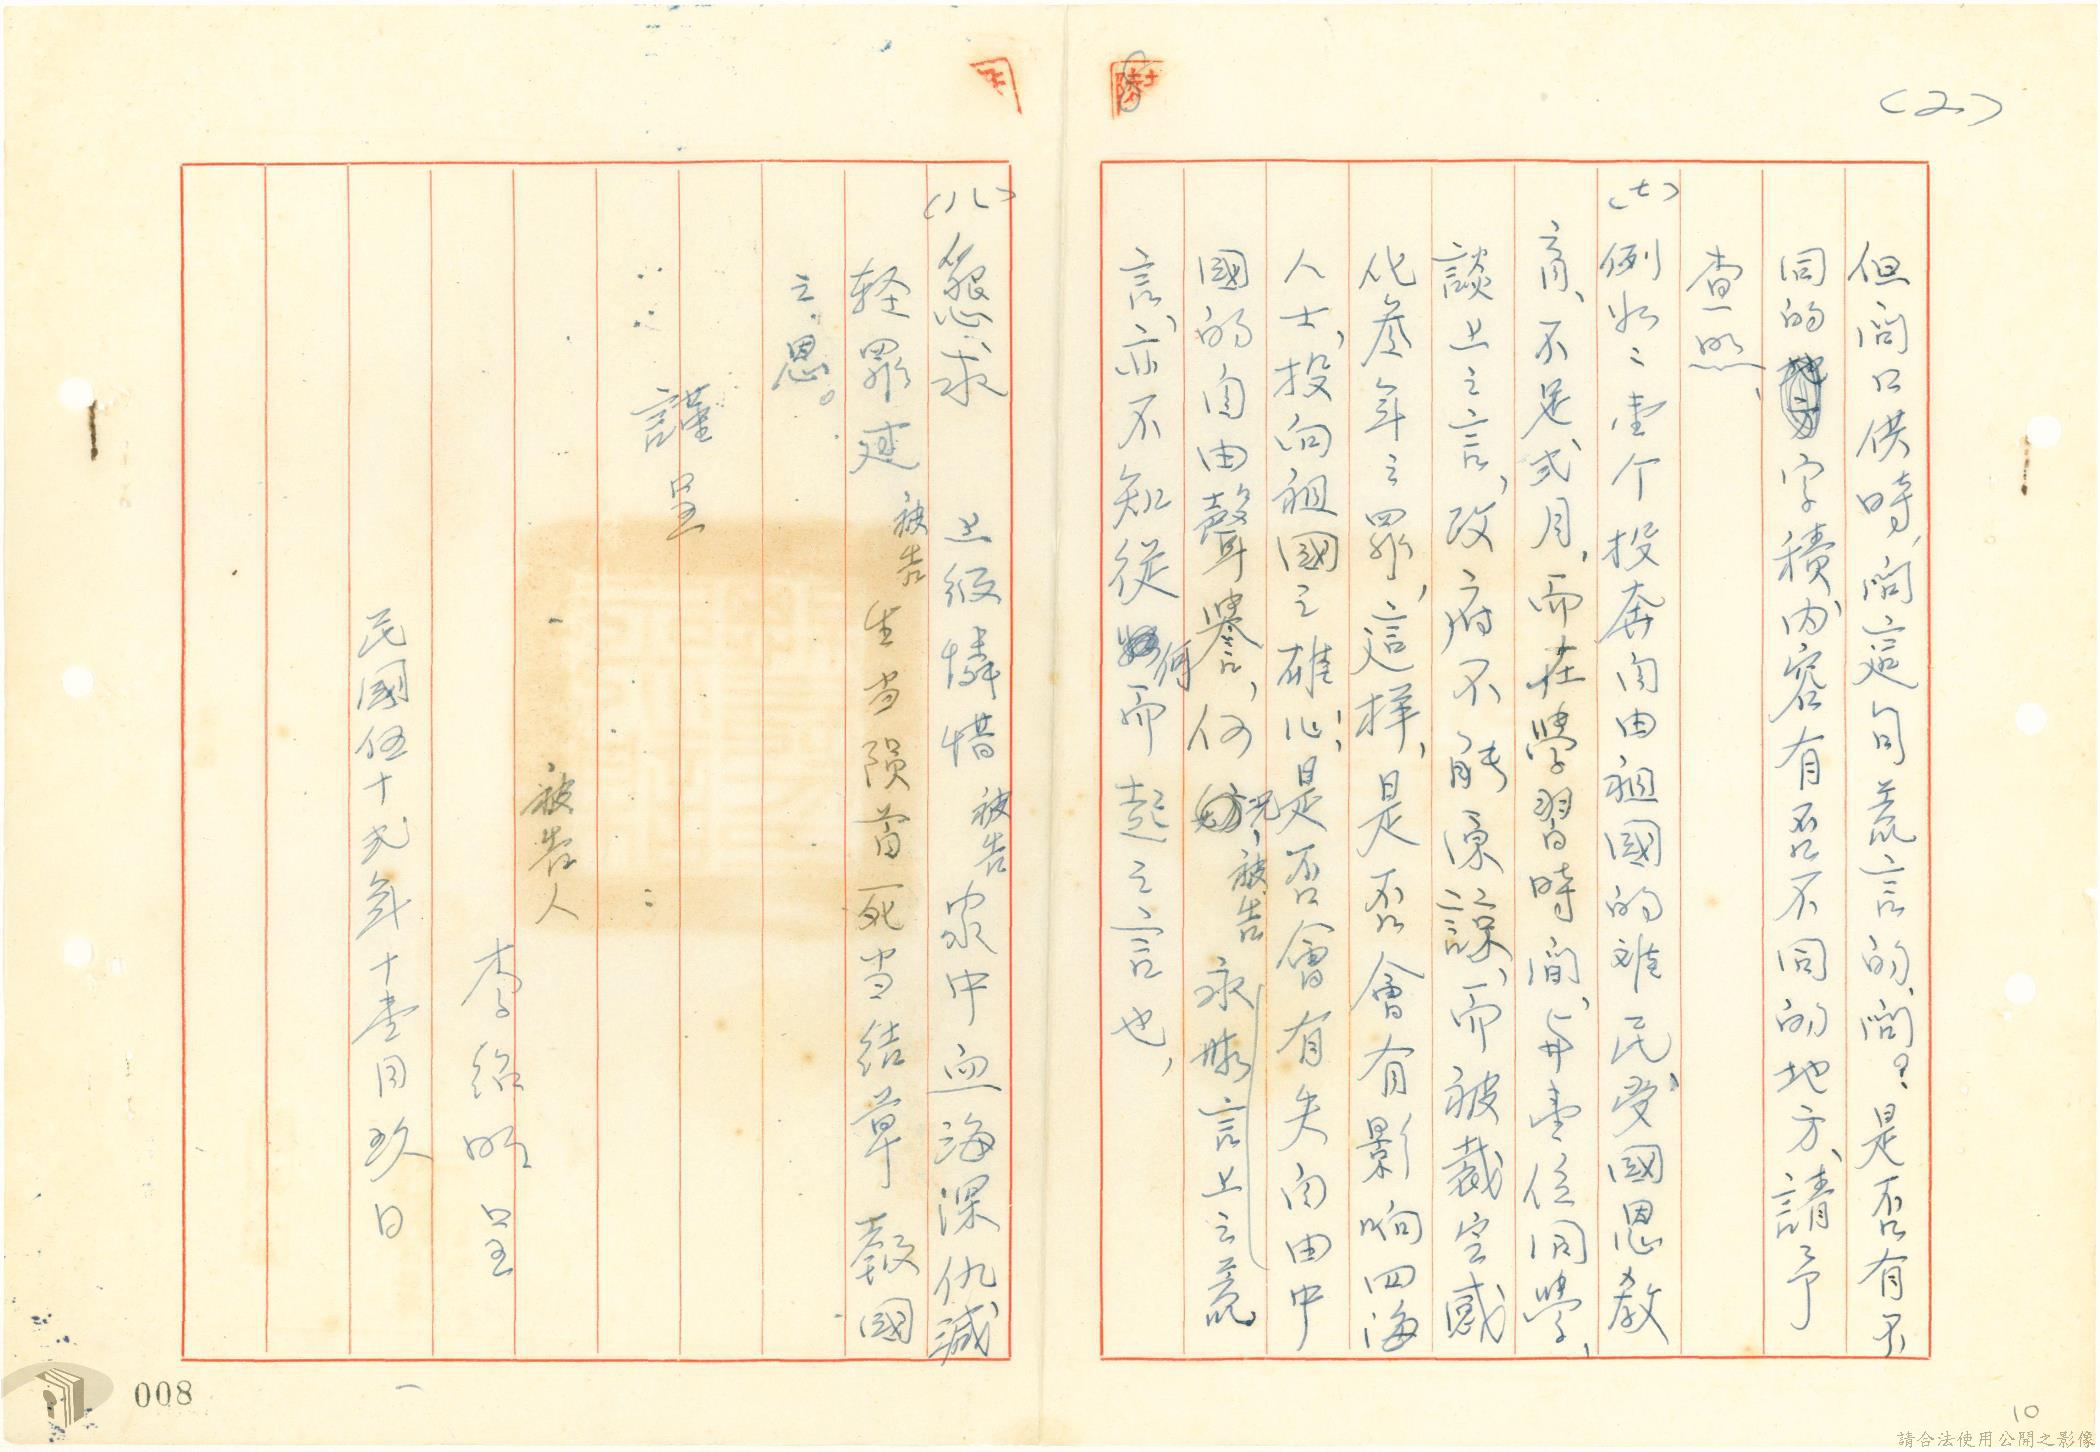 (2)
但问口供時，问這句荒言的问？是否有不
同的字積、内容有否不同的地方、請予
查照、
(七)例如：壹个投奔自由祖國的难民、受國恩教
育、不足弍月，而在學習時間，与壹位同學，
談上之言，政府不能原諒，而被裁定感
化叁年之罪，這样，是否會有影响四海
人士，投向祖國之雄心，是否會有失自由中
國的自由聲譽，何况，被告永無言上之荒
言，亦不知從何而起之言也，
(八)懇求　上級憐惜被告家中血海深仇減
轻罪廷被告生当隕首死当结草報國
之恩。
謹呈
被告人
李绍明呈
民國伍十弍年十壹月玖日
008
10
請合法使用公開之影像